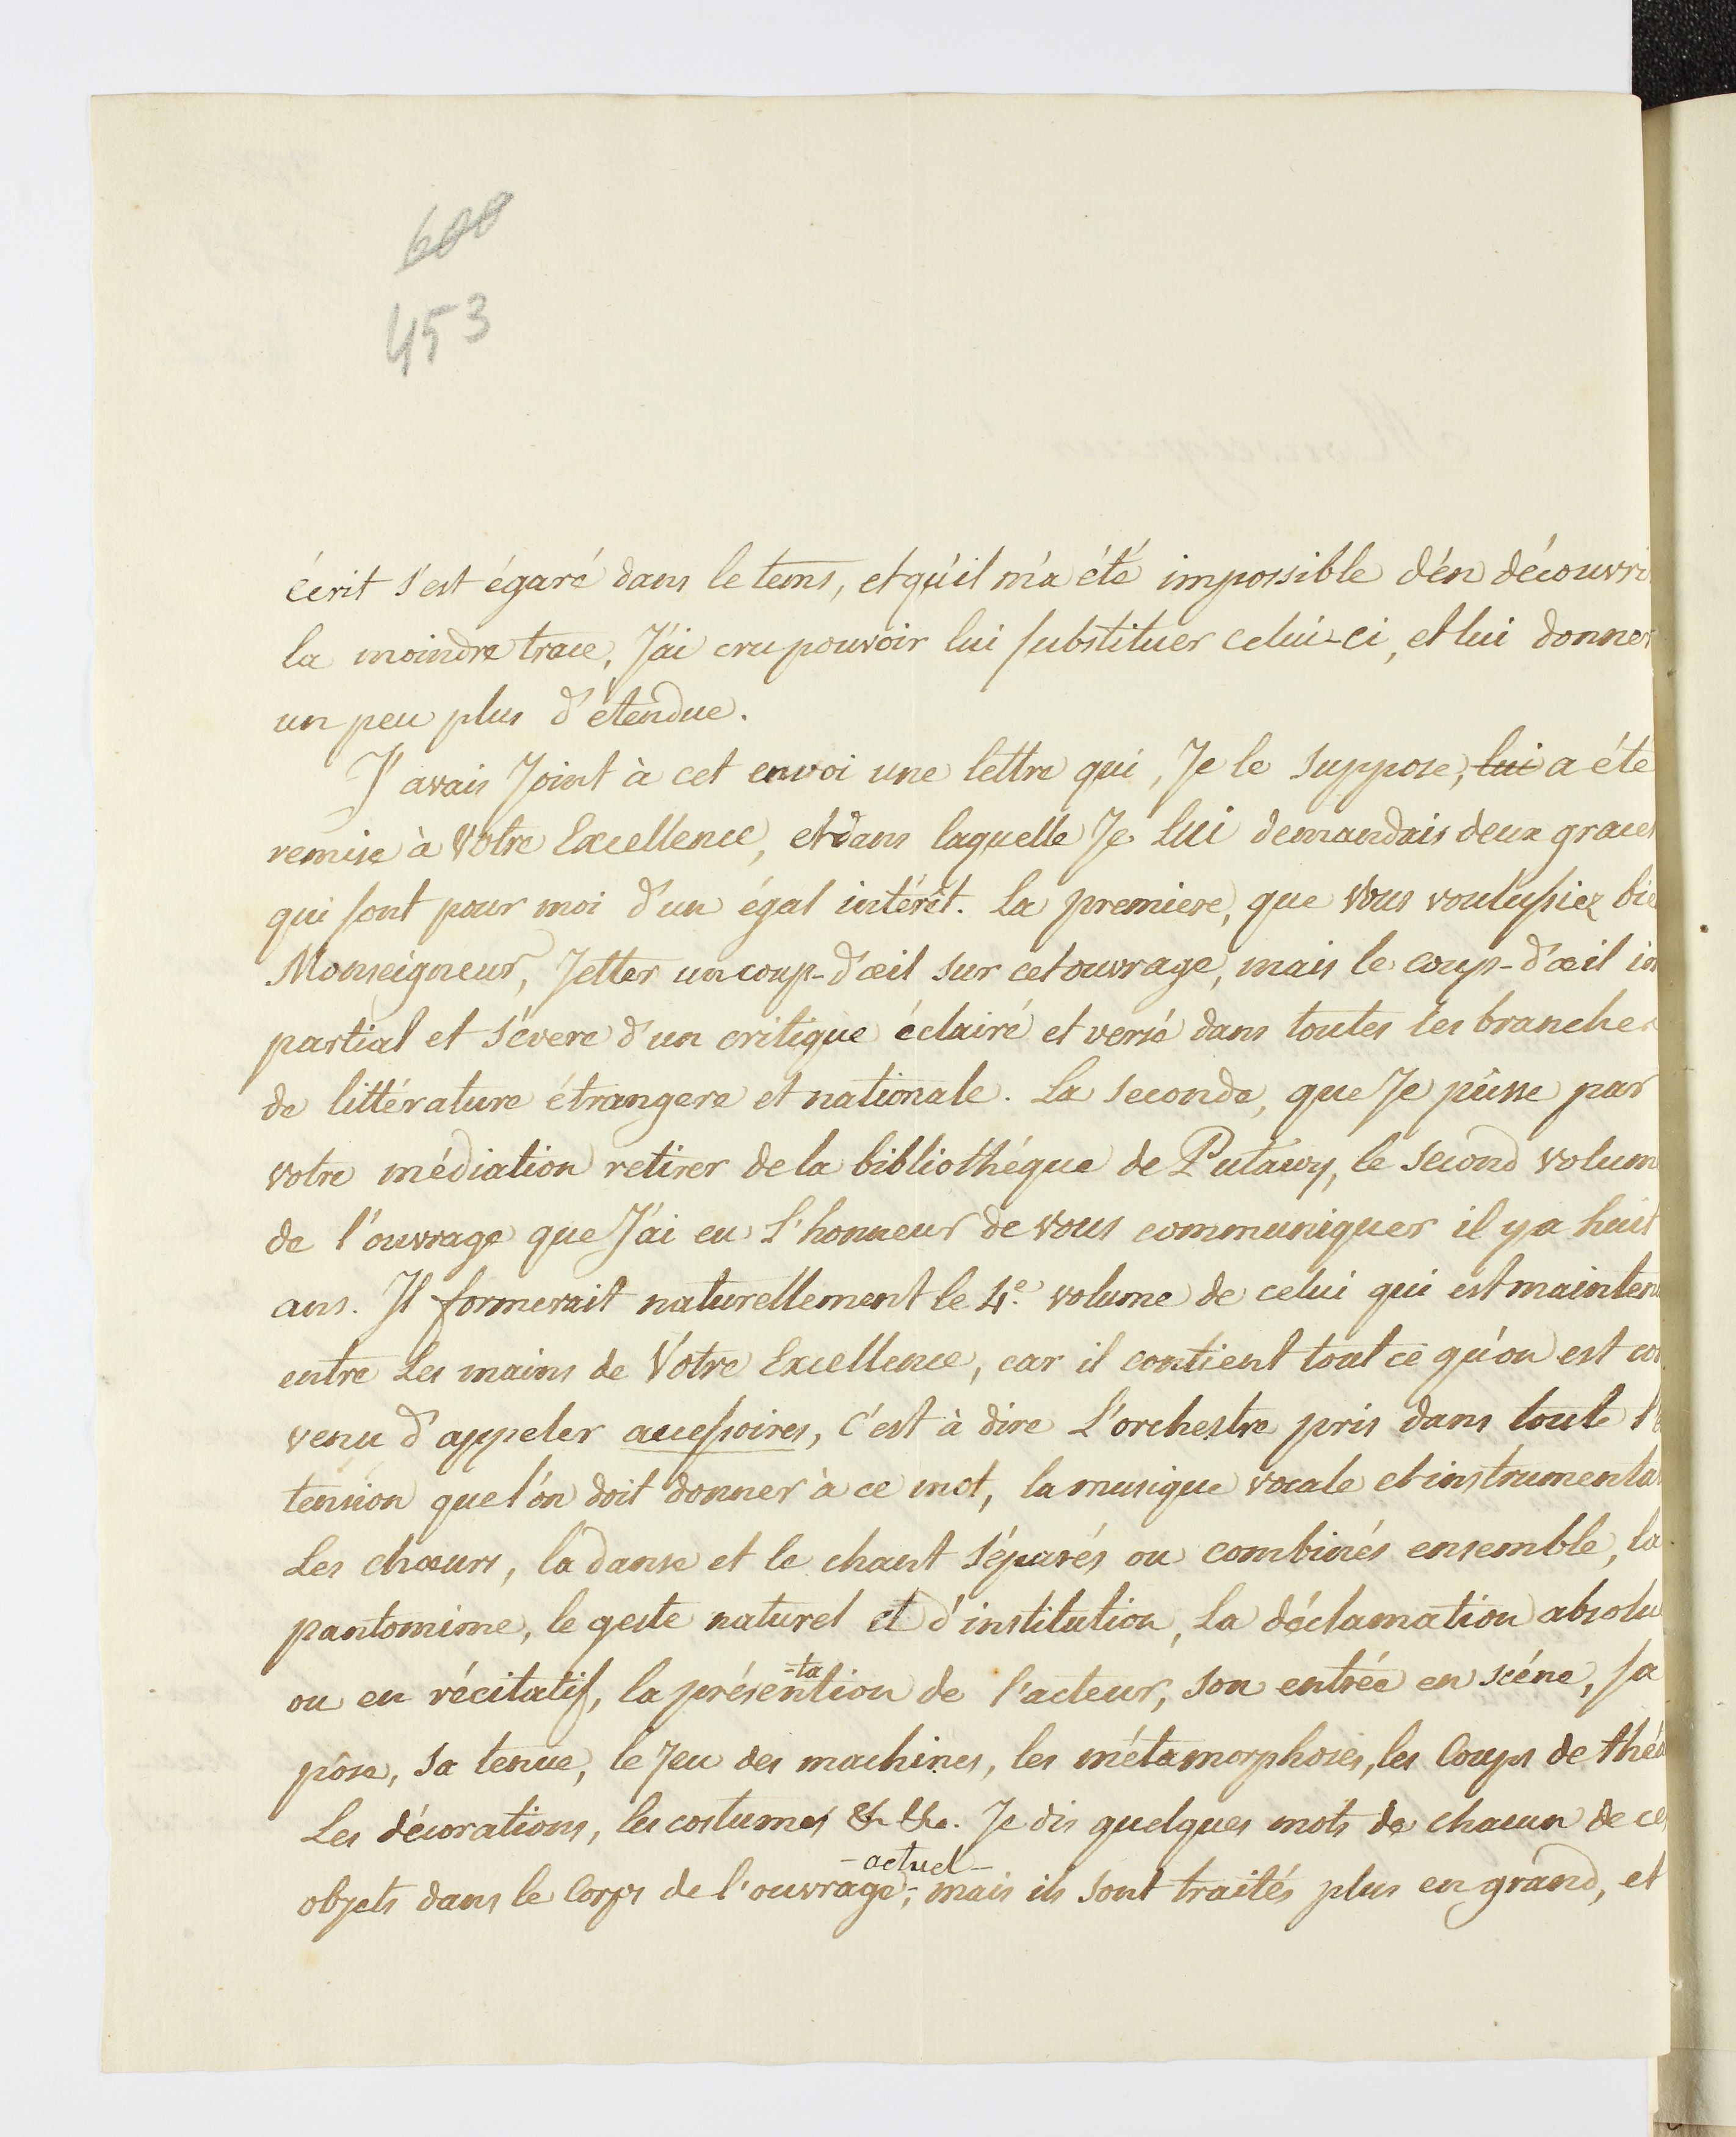 600
453
écrit s'est égaré dans le tems, et qu'il m'a été impossible d'en découvri
la moindre trace, J'ai cru pouvoir lui substituer celui-ci, et lui donner
un peu plus d'étendue.
J'avais Joint à cet envoi une lettre qui, Je le suppose, lui a été
remise à Votre Excellence, et dans laquelle Je Lui demandais deux graces
qui sont pour moi d'un égal intérêt. La premiere, que Vous voulussiez bie
Monseigneur, Jetter un coup-d'œil sur cet ouvrage, mais le coup-d'œil im
partial et sévere d'un critique éclairé et versé dans toutes les branches
de littérature étrangere et nationale. La seconde, que Je pûsse par
votre médiation retirer de la bibliothéque de Puławy, le second volum
de l'ouvrage que J'ai eu L'honneur de vous communiquer il y a huit
ans. Il formerait naturellement le 4e. volume de celui qui est mainten
entre Les mains de Votre Excellence, car il contient tout ce qu'on est con
venu d'appeler accessoires, c'est à dire L'orchestre pris dans toute l'e
tension que l'on doit donner à ce mot, la musique vocale et instrumental
Les chœurs, la danse et le chant séparés ou combinés ensemble, la
pantomime, le geste naturel et d'institution, La déclamation absolu
ou en récitatif, la présen-tation de l'acteur, son entrée en scéne, sa
pôse, sa tenue, le Jeu des machines, les métamorphoses, les Coups de théa
Les décorations, les costumes &c &c. Je dis quelques mots de chacun de ces
objets dans le Corps de l'ouvrage -actuel-; mais ils sont traités plus en grand, et